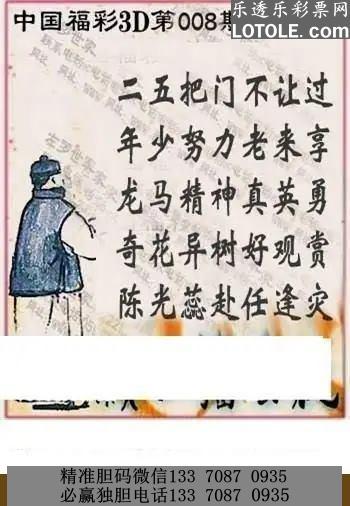 中国福彩3D第008期
乐透乐彩票网
LOTOLE.COM
二五把门不让过
年少努力老来享
龙马精神真英勇
奇花异树好观赏
陈光蕊赴任逢灾
精准胆码微信133 7087 0935
必赢独胆电话133 7087 0935